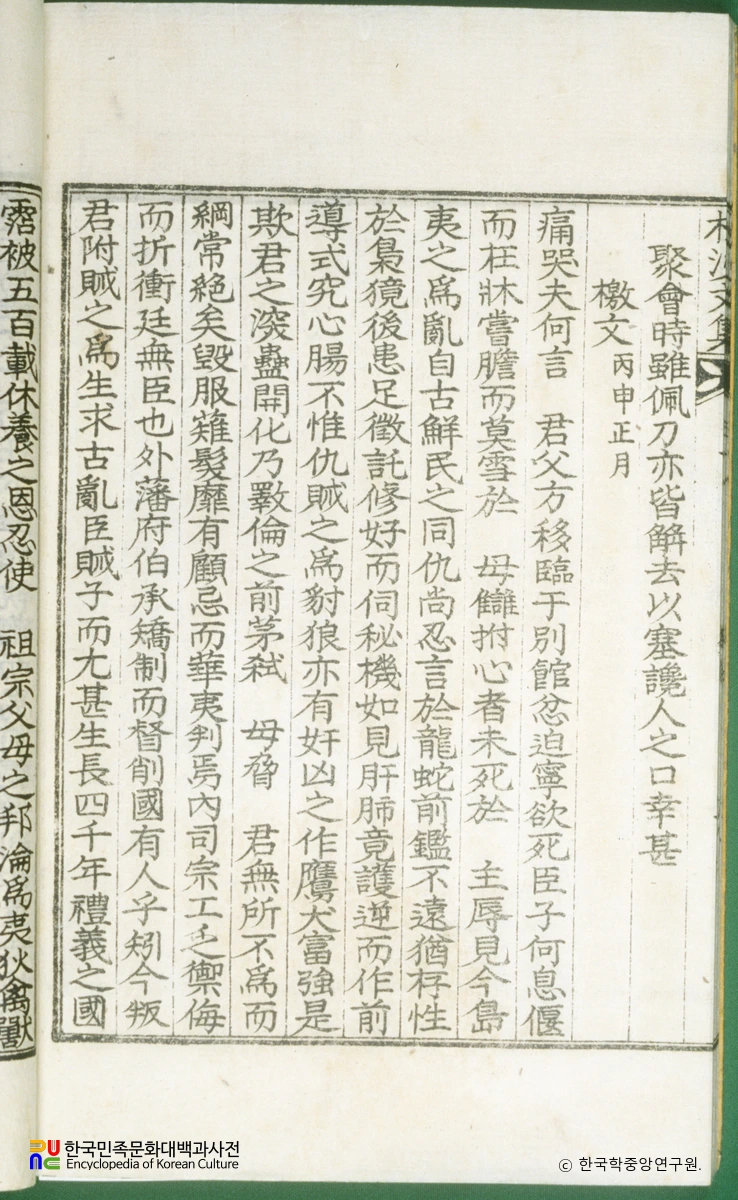 文集
聚會時雖佩刀亦皆解去以塞讒人之口幸甚
檄文 丙申正月
痛哭夫何言 君父方移臨于別館忿迫寧欲死臣子何息偃
而在牀嘗膽而莫雪於 母讎拊心者未死於 主辱見今島
夷之爲亂自古鮮民之同仇尚忍言於龍蛇前鑑不遠猶存性
於梟獍後患足徵託修好而伺秘機如見肝肺竟護逆而作前
導式究心腸不惟仇賊之爲豺狼亦有奸凶之作鷹犬富強是
欺君之深蠱開化乃斁倫之前茅弑 母脅 君無所不爲而
綱常絶矣毀服薙髮靡有顧忌而華夷判焉內司宗工乏禦侮
而折衝廷無臣也外藩府伯承矯制而督削國有人乎矧今叛
君附賊之爲生求古亂臣賊子而尤甚生長四千年禮義之國
霑被五百載休養之恩忍使 祖宗父母之邦淪爲夷狄禽獸
한국민족문화대백과사전
Encyclopedia of Korean Culture
ⓒ 한국학중앙연구원.